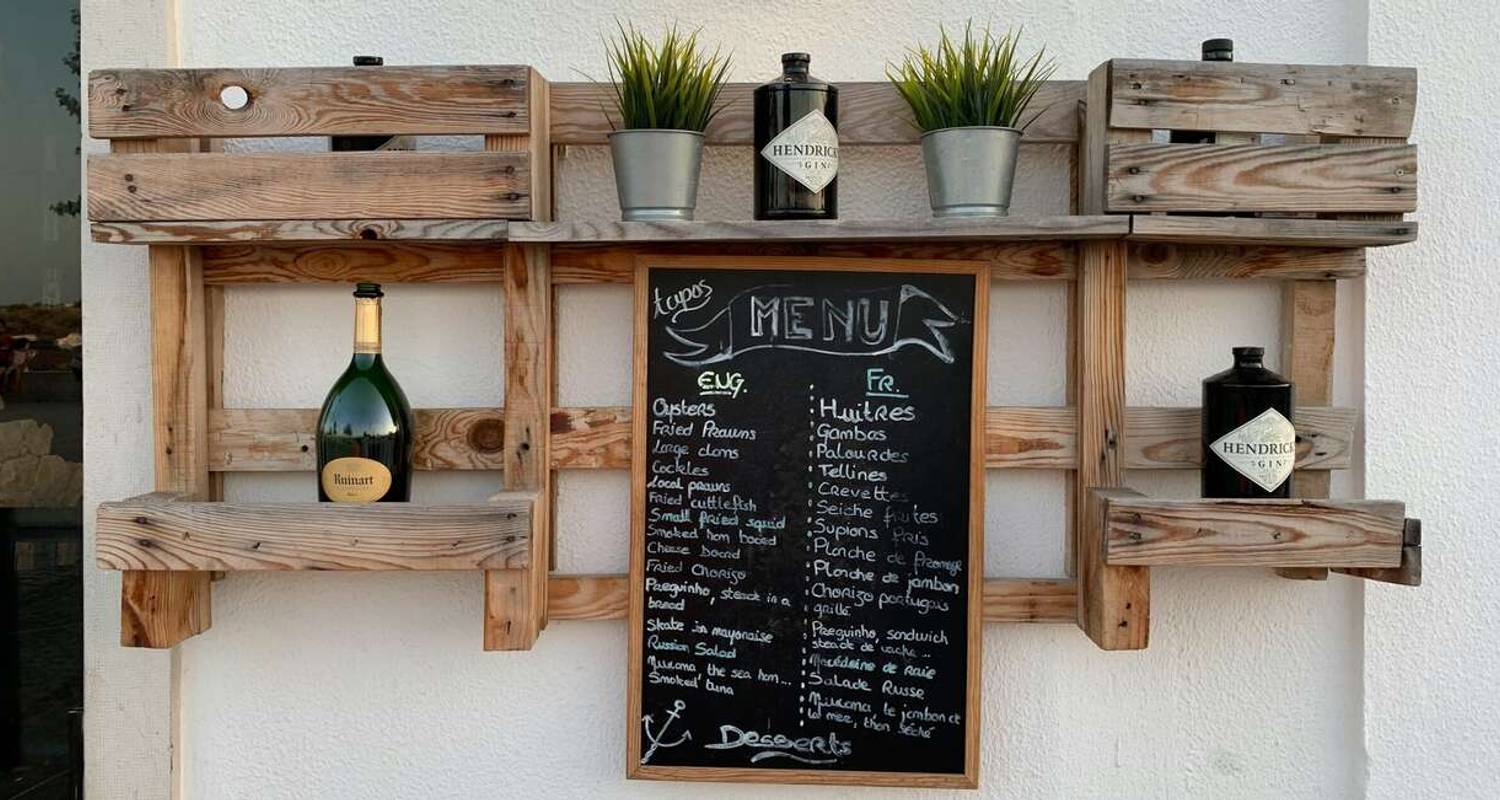 HENDRICK
GIN
tapas
MENU
ENG.
Oysters
Fried Prawns
Large clams
Cockles
Local prawns
Fried cuttlefish
Small fried squid
Smoked ham board
Cheese board
Fried Chorizo
Preguinho, steack in a
bread
Skate in mayonaise
Russian Salad
Muxama the sea ham...
Smoked tuna
FR.
Huitres
Gambas
Palourdes
Tellines
Crevettes
Seiche frites
Supions fris
Planche de fromage
Planche de jambon
Chorizo portugais
grillé
Preguinho, sandwich
steack de vache...
de raie
Salade Russe
Muxama le jambon de
la mer, thon séché
Desserts
Ruinart
HENDRICK
GIN